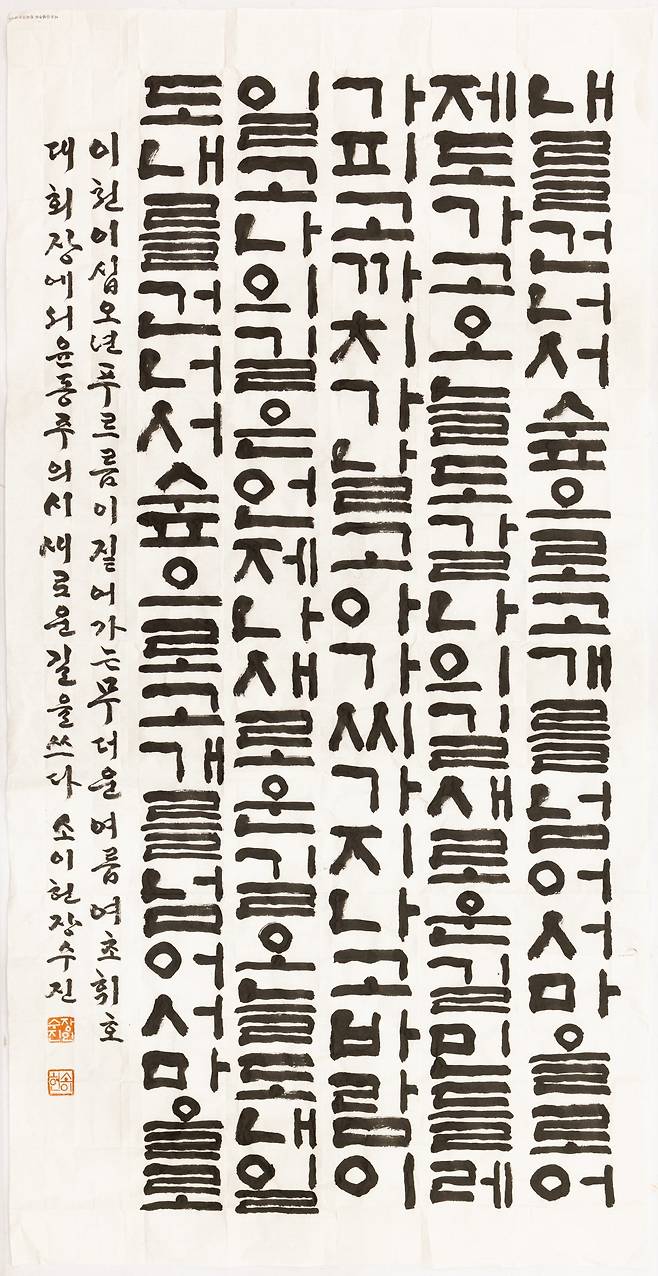 내를건너서숲으로고개를넘어서마을로어
제도가고오늘도갈나의길새로운길민들레
가피고까치가날고아가씨가지나고바람이
일고나의길은언제나새로운길오늘도내일
도내를건너서숲으로고개를넘어서마을로
이천이십오년푸르름이짙어가는무더운여름여초휘호
대회장에서윤동주의시새로운길을쓰다 소이헌장수진